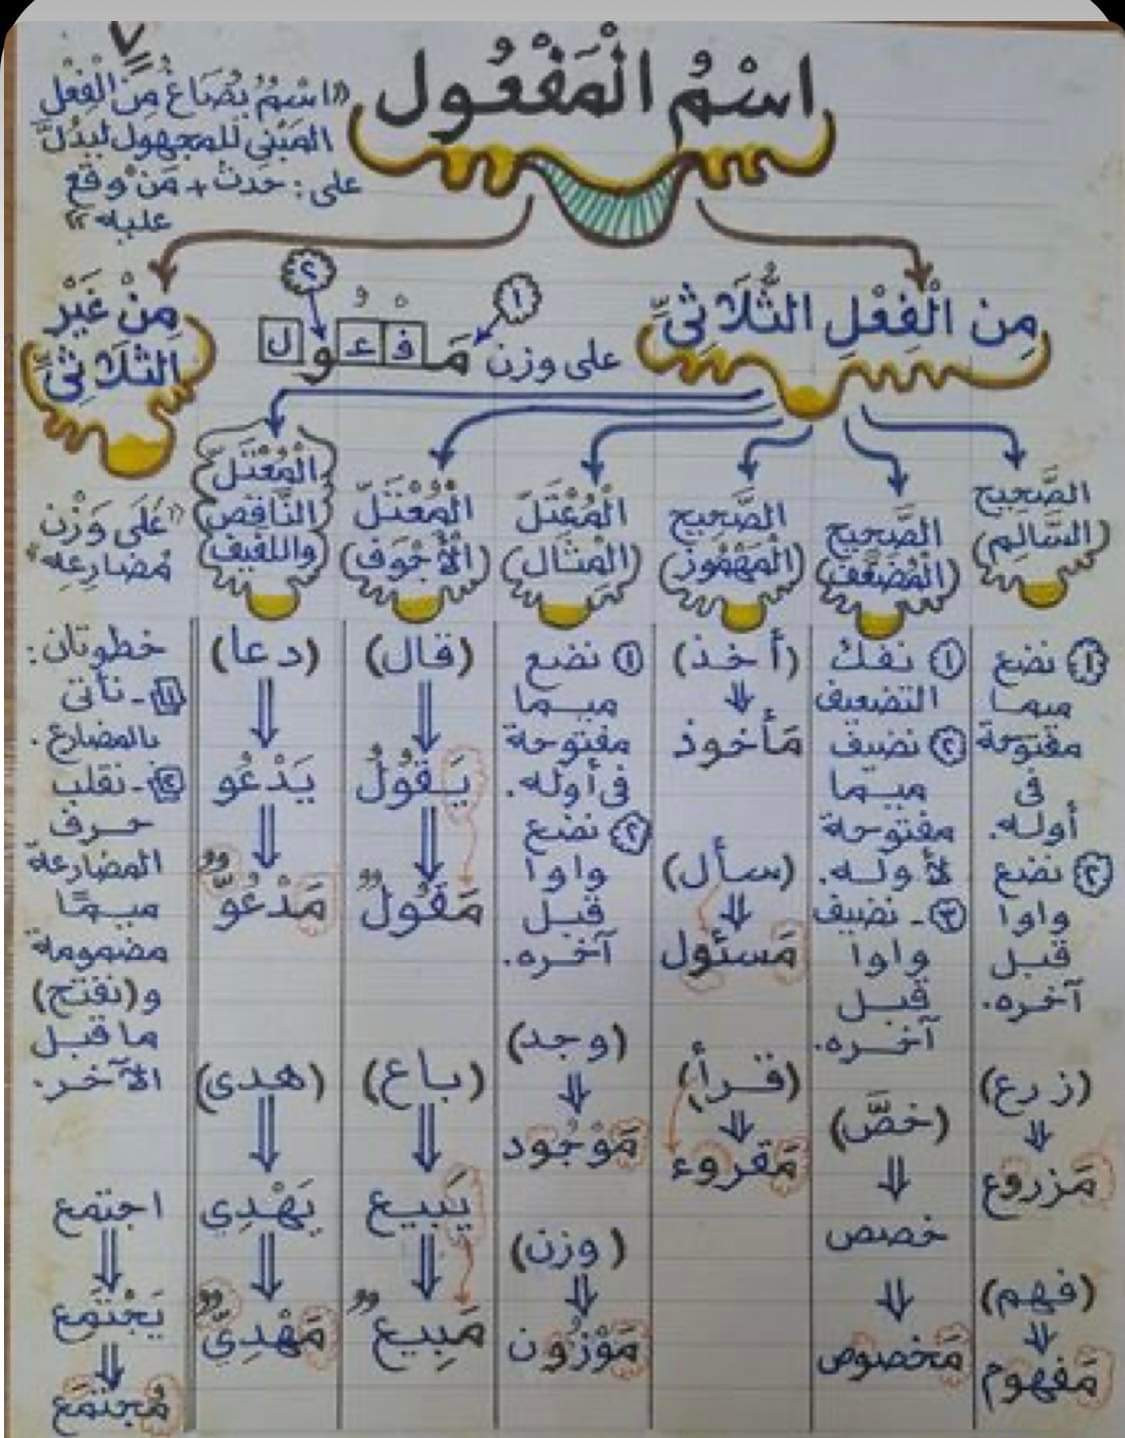 اسْمُ الْمَفْعُول
«اسْمٌ يُصَاغُ مِنَ الْفِعْلِ
المَبْنِي للمجهول ليَدُلَّ
على: حَدَث + مَنْ وقع
عليه»
مِن الْفِعْلِ الثُّلَاثِيِّ
على وزن مَفْعُول
١
٢
مِنْ غَيْرِ
الثُّلَاثِيِّ
الصَّحِيح
(السَّالِم)
١ نضع
ميما
مفتوحة
فى
أوله.
٢ نضع
واوا
قبل
آخره.
(زرع)
مَزروع
(فهم)
مَفهوم
الصَّحِيح
(الْمُضَعَّف)
١ نفك
التضعيف
٢ نضيف
ميما
مفتوحة
لأوله.
٣- نضيف
واوا
قبل
آخره.
(خصَّ)
خصص
مَخصوص
الصَّحِيح
(الْمَهْمُوز)
(أخذ)
مَأخوذ
(سأل)
مَسئول
(قرأ)
مَقروء
الْمُعْتَلّ
(الْمِثَال)
١ نضع
ميما
مفتوحة
فى أوله.
٢ نضع
واوا
قبل
آخره.
(وجد)
مَوْجُود
(وزن)
مَوْزُون
الْمُعْتَلّ
(الْأَجْوَف)
(قال)
يَقُولُ
مَقُول
(باع)
يَبيع
مَبِيع
الْمُعْتَلّ
النَّاقِص
واللفيف
(دعا)
يَدْعُو
مَدْعُوّ
(هدى)
يَهْدِي
مَهْدِيّ
«عَلَى وَزْن
مُضَارِعِه»
خطوتان:
١- نأتى
بالمضارع.
٢- نقلب
حرف
المضارعة
ميمًا
مضمومة
و(نفتح)
ما قبل
الآخر.
اجتمع
يَجْتَمع
مُجتمَع